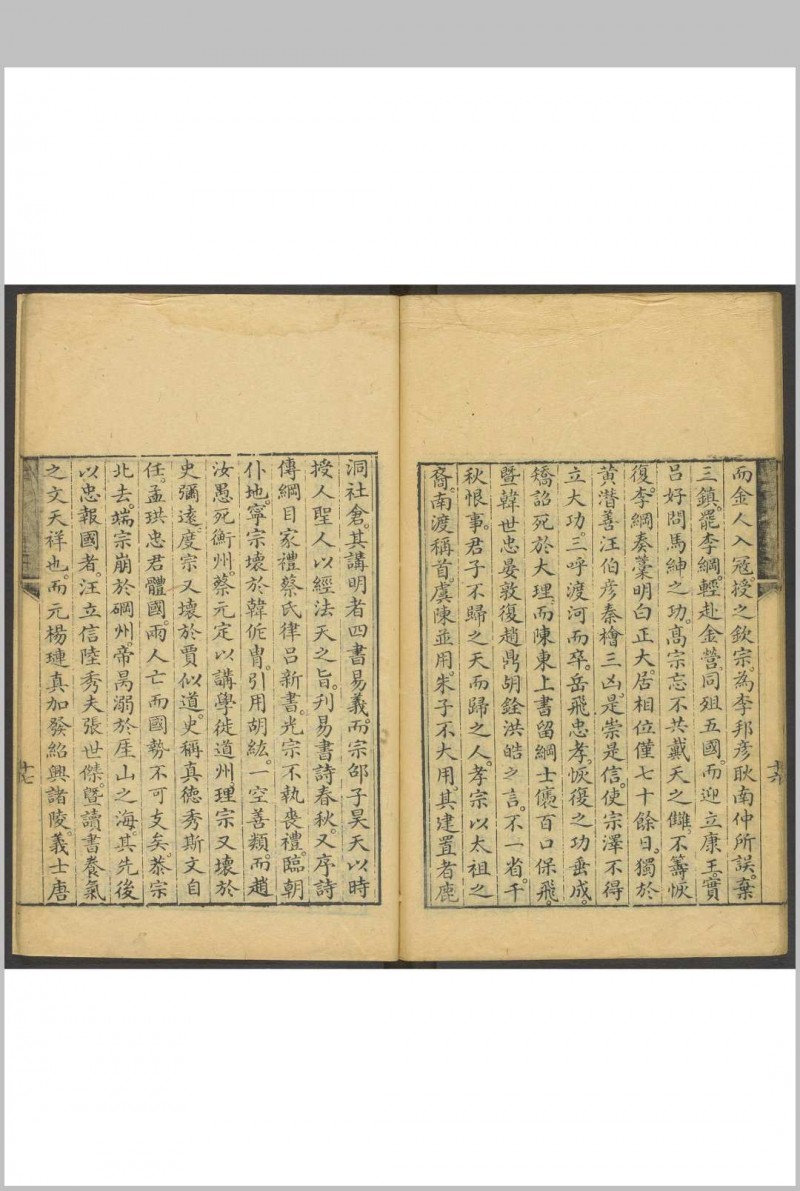 而金人入冦。授之欽宗。為李邦彦耿南仲所誤。棄
三鎮。罷李綱。輕赴金營。同徂五國。而迎立康王。實
吕好問馬紳之功。髙宗忘不共戴天之讎。不籌恢
復。李綱奏藁明白正大。居相位僅七十餘日。獨於
黄潜善汪伯彦秦檜三凶。是崇是信。使宗澤不得
立大功。三呼渡河而卒。岳飛忠孝。恢復之功垂成。
矯詔死於大理。而陳東上書留綱士㒟百口保飛。
暨韓世忠晏敦復趙鼎胡銓洪皓之言。不一省。千
秋恨事。君子不歸之天而歸之人。孝宗以太祖之
裔。南渡稱首。虞陳並用。朱子不大用。其建置者鹿
十六
洞社倉。其講明者四書易義。而宗邵子昊天以時
授人聖人以經法天之旨。刋易書詩春秋。又序詩
傳綱目家禮蔡氏律吕新書。光宗不執喪禮。臨朝
仆地。寧宗壞於韓侂胄。引用胡紘。一空善類。而趙
汝愚死衡州。蔡元定以講學徙道州理宗又壞於
史彌遠。度宗又壞於賈似道。史稱真德秀斯文自
任。孟珙忠君體國。兩人亡而國勢不可支矣。恭宗
北去。端宗崩於碙州。帝昺溺於厓山之海。其先後
以忠報國者。汪立信陸秀夫張世傑。暨讀書養氣
之文天祥也。而元楊璉真加發紹興諸陵。義士唐
十七